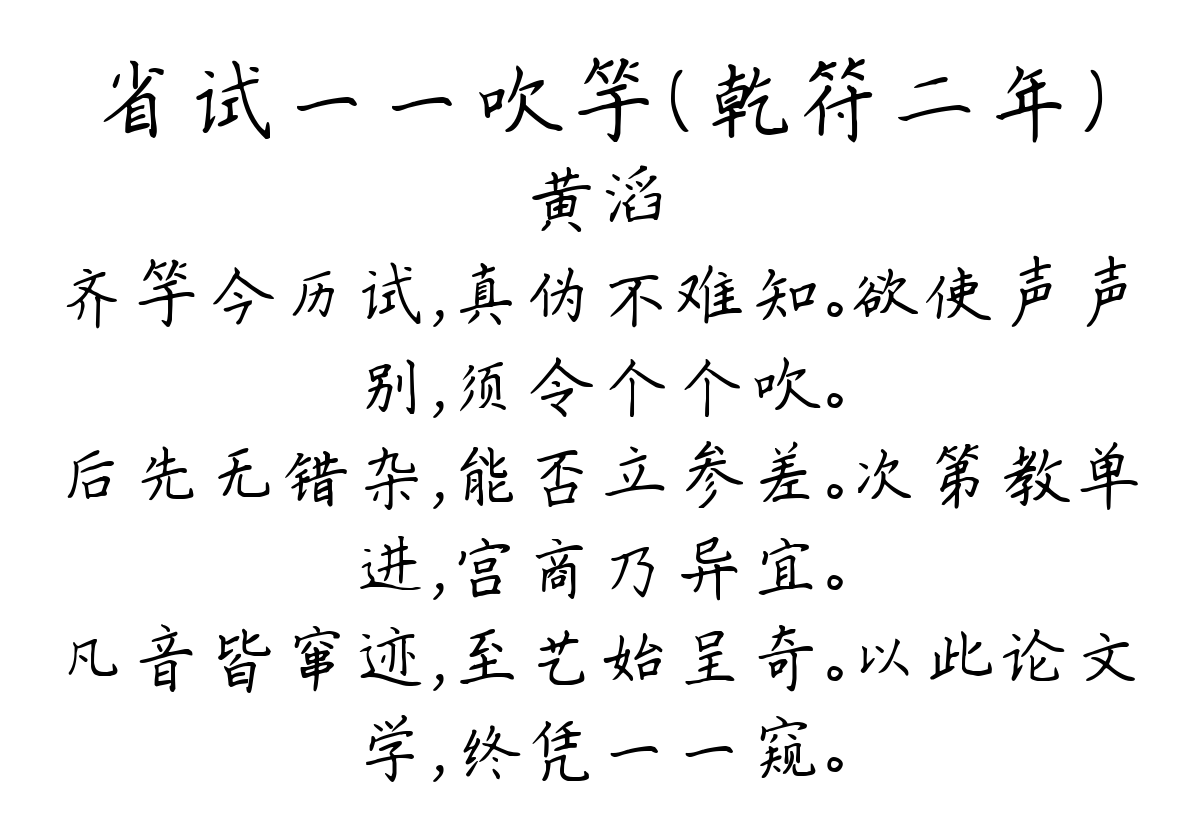 省试一一吹竽(乾符二年)
黄滔
齐竽今历试,真伪不难知。欲使声声
别,须令个个吹。
后先无错杂,能否立参差。次第教单
进,宫商乃异宜。
凡音皆窜迹,至艺始呈奇。以此论文
学,终凭一一窥。